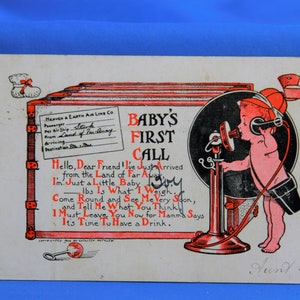 Heaven & Earth Air Line Co.
Passenger
Per Air Ship Stork
From Land of Far Away
Arriving
Destination
BABY'S
FIRST
CALL
Hello, Dear Friend! I've Just Arrived
from the Land of Far Away
I'm Just a Little Baby Boy
lbs Is What I Weigh.
Come Round and See Me Very Soon,
and Tell Me What You Think,
I Must Leave You Now for Mamma Says
It's Time to Have a Drink.
Aunt